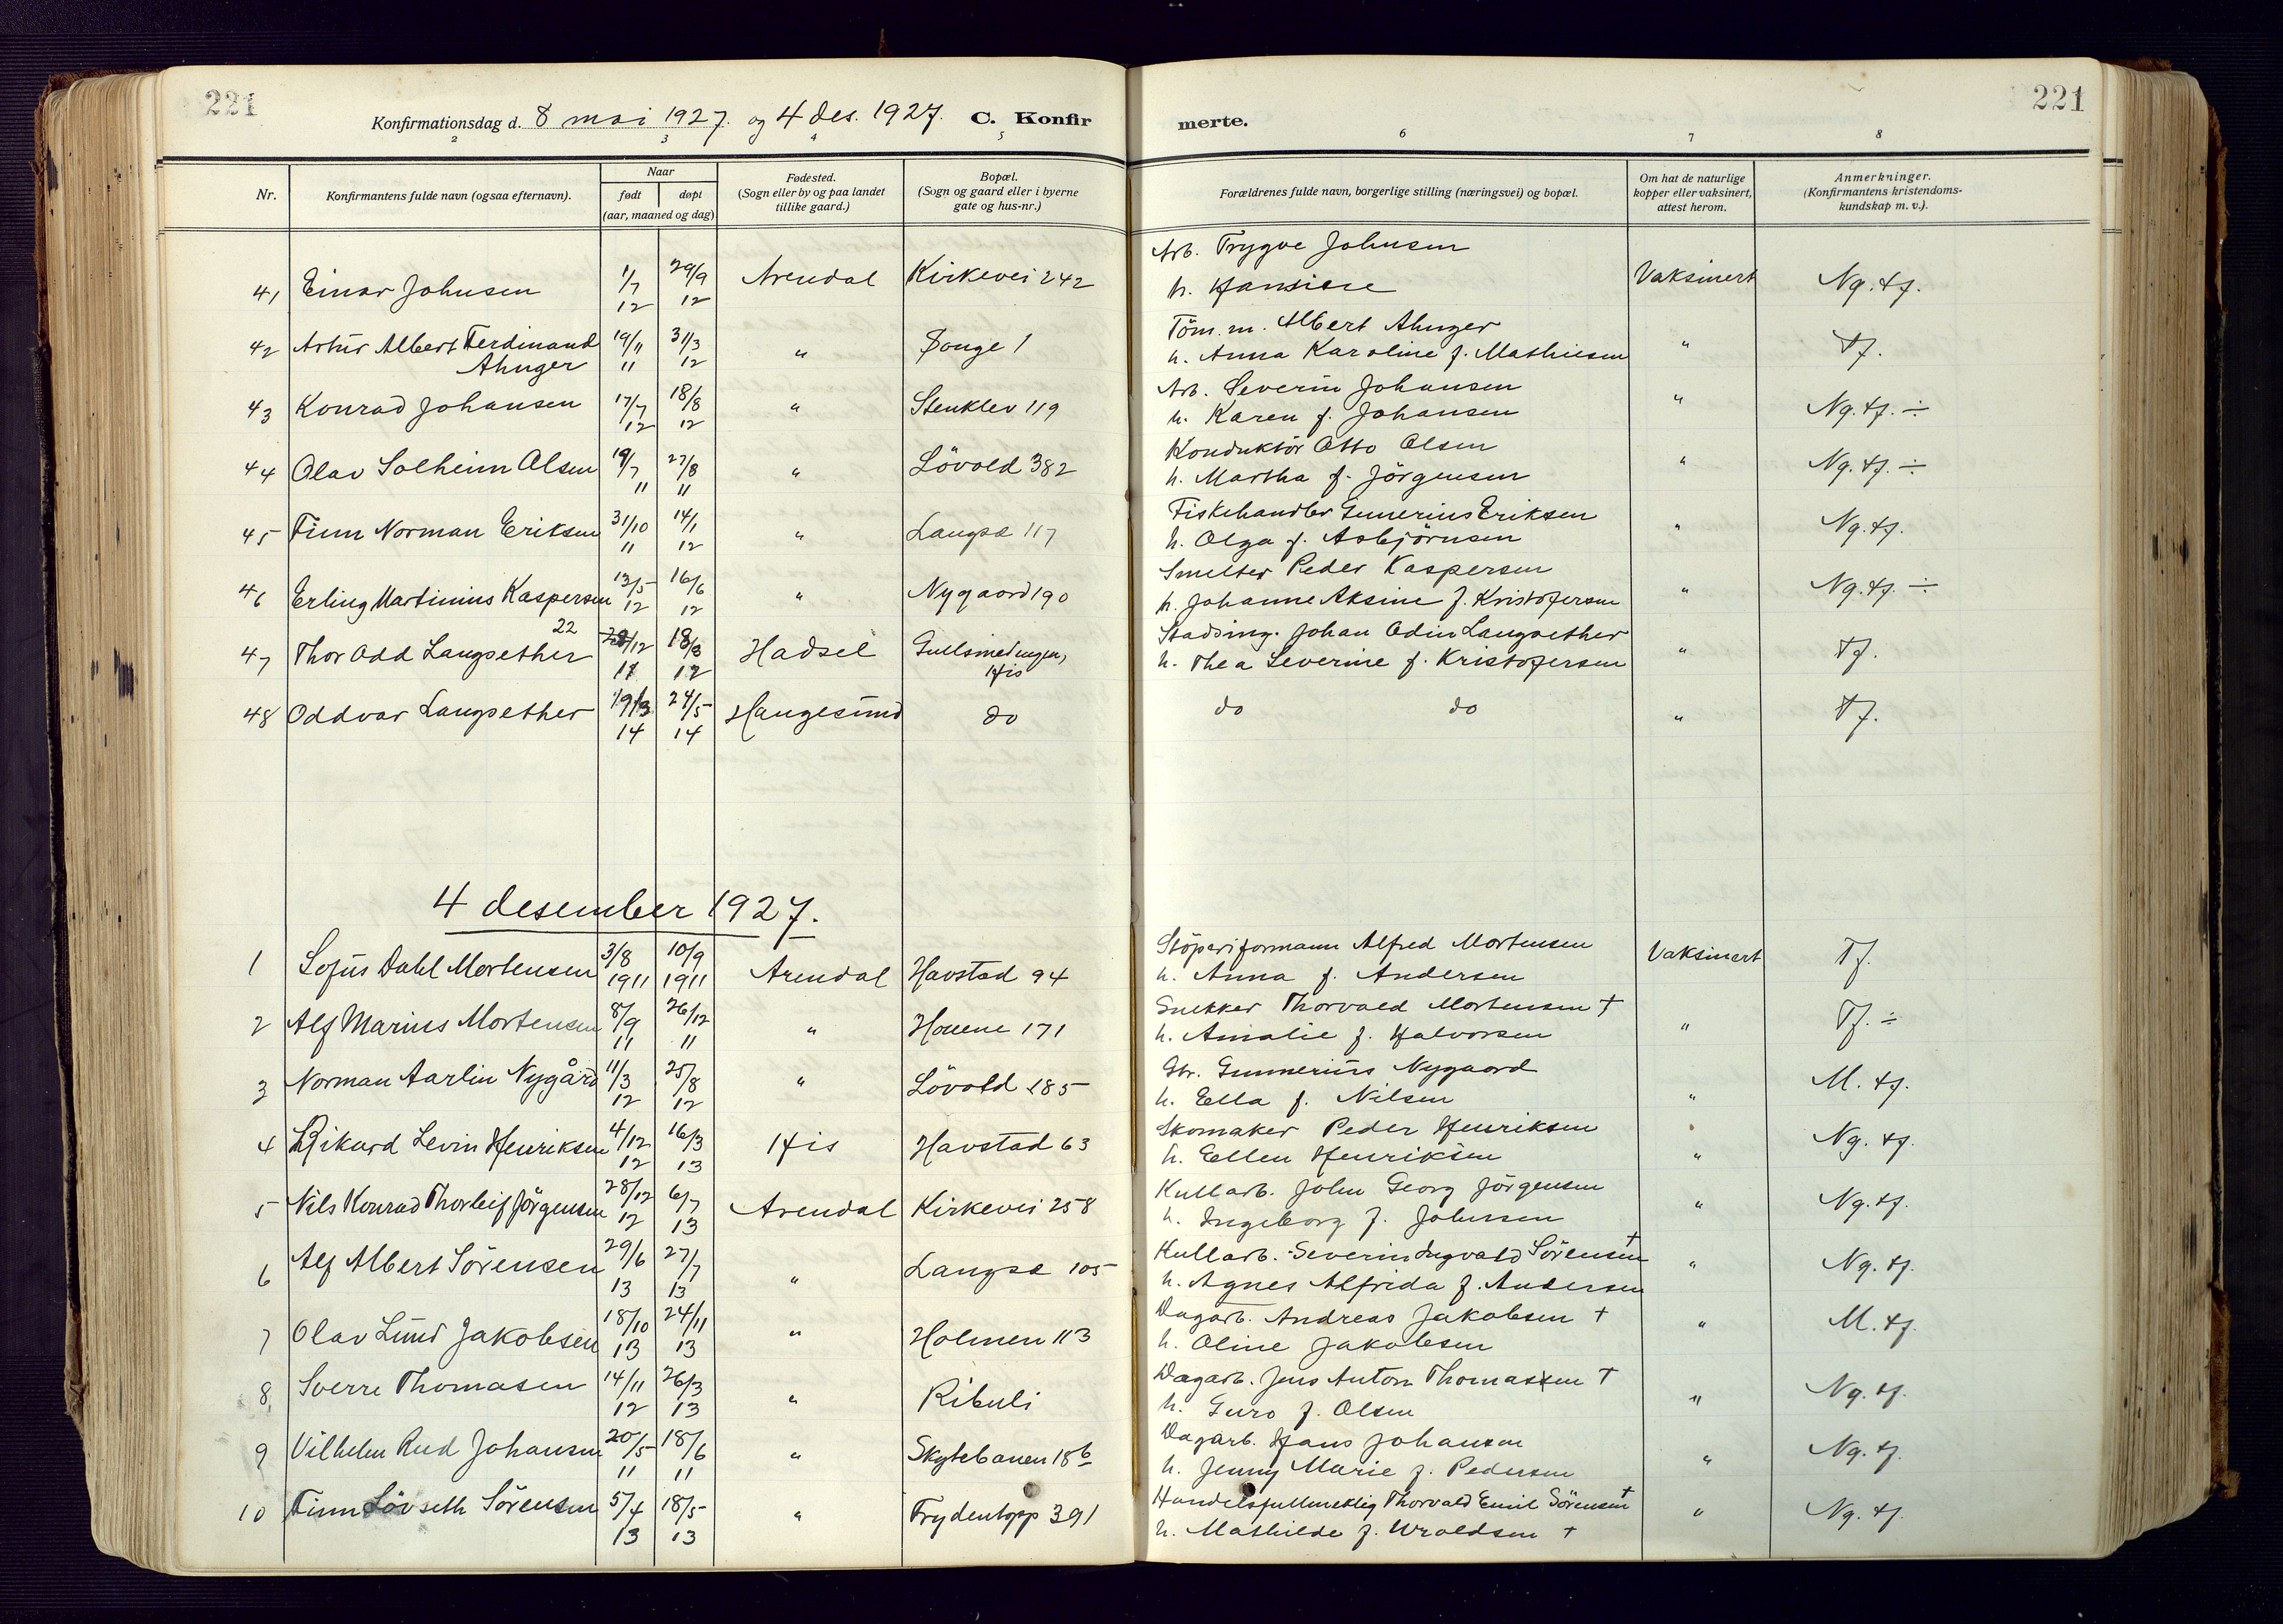 221
Konfirmationsdag d. 8 mai 1927. og 4 des. 1927. C. Konfir
merte.
221
2 3 4 5 6 7 8
Nr.
Konfirmantens fulde navn (ogsaa efternavn).
Naar
født
døpt
(aar, maaned og dag)
Fødested.
(Sogn eller by og paa landet
tillike gaard.)
Bopæl.
(Sogn og gaard eller i byerne
gate og hus-nr.)
Forældrenes fulde navn, borgerlige stilling (næringsvei) og bopæl.
Om hat de naturlige
kopper eller vaksinert,
attest herom.
Anmerkninger.
(Konfirmantens kristendoms-
kundskap m. v.).
41 Einar Johnsen 1/7 12 29/9 12 Arendal Kirkevei 242
Arb. Trygve Johnsen
h. Hansine
Vaksinert Ng. tf.
42 Artur Albert Ferdinand
Ahnger 19/11 11 31/3 12 " Songe 1
Töm. m. Albert Ahnger
h. Anna Karoline f. Mathiesen
" tf.
43 Konrad Johansen 17/7 12 18/8 12 " Stenklev 119
Arb. Severin Johansen
h. Karen f. Johansen
" Ng. tf. ÷
44 Olav Solheim Olsen 19/7 11 27/8 11 " Lövold 382
Konduktör Otto Olsen
h. Martha f. Jörgensen
" Ng. tf. ÷
45 Finn Norman Eriksen 31/10 11 14/1 12 " Langsæ 117
Fiskehandler Gunerius Eriksen
h. Olga f. Asbjörnsen
" Ng. tf.
46 Erling Martinius Kaspersen 13/5 12 16/6 12 " Nygaard 190
Smelter Peder Kaspersen
h. Johanne Aksine f. Kristofersen
" Ng. tf. ÷
47 Thor Odd Langsether 22 28/12 11 18/8 12 Hadsel Gullsmedengen,
His
Stadsing. Johan Odin Langsether
h. Thea Severine f. Kristofersen
" tf.
48 Oddvar Langsether 19/3 14 24/5 14 Haugesund do
do do
" tf.
4 desember 1927.
1 Sofus Dahl Mortensen 3/8 1911 10/9 1911 Arendal Havstad 94
Stöperiformann Alfred Mortensen
h. Anna f. Andersen
Vaksinert Tf.
2 Alf Marius Mortensen 8/9 11 26/12 11 " Houene 171
Snekker Thorvald Mortensen †
h. Amalie f. Halvorsen
" Tf. ÷
3 Norman Aarlin Nygård 11/3 12 25/8 12 " Lövold 185
Gbr. Gunnerius Nygaard
h. Ella f. Nilsen
" M. tf.
4 Rikard Levin Henriksen 4/12 12 16/3 13 His Havstad 63
Skomaker Peder Henriksen
h. Ellen Henriksen
" Ng. tf.
5 Nils Konrad Thorleif Jörgensen 28/12 12 6/7 13 Arendal Kirkevei 258
Kullarb. John Georg Jörgensen
h. Ingeborg f. Johnsen
" Ng. tf.
6 Alf Albert Sörensen 29/6 13 27/7 13 " Langsæ 105
Kullarb. Severin Ingvald Sörensen †
h. Agnes Alfrida f. Andersen
" Ng. tf.
7 Olav Lund Jakobsen 18/10 13 24/11 13 " Holmen 113
Dagarb. Andreas Jakobsen †
h. Oline Jakobsen
" M. tf.
8 Sverre Thomasen 14/11 12 26/3 13 " Ribuli
Dagarb. Jens Anton Thomassen †
h. Guro f. Olsen
" Ng. tf.
9 Vilhelm Rud Johansen 20/5 11 18/6 11 " Skytebanen 18b
Dagarb. Hans Johansen
h. Jenny Marie f. Pedersen
" Ng. tf.
10 Finn Lövseth Sörensen 5/4 13 18/5 13 " Frydentopp 391
Handelsfullmektig Thorvald Emil Sörensen †
h. Mathilde f. Wroldsen †
" Ng. tf.